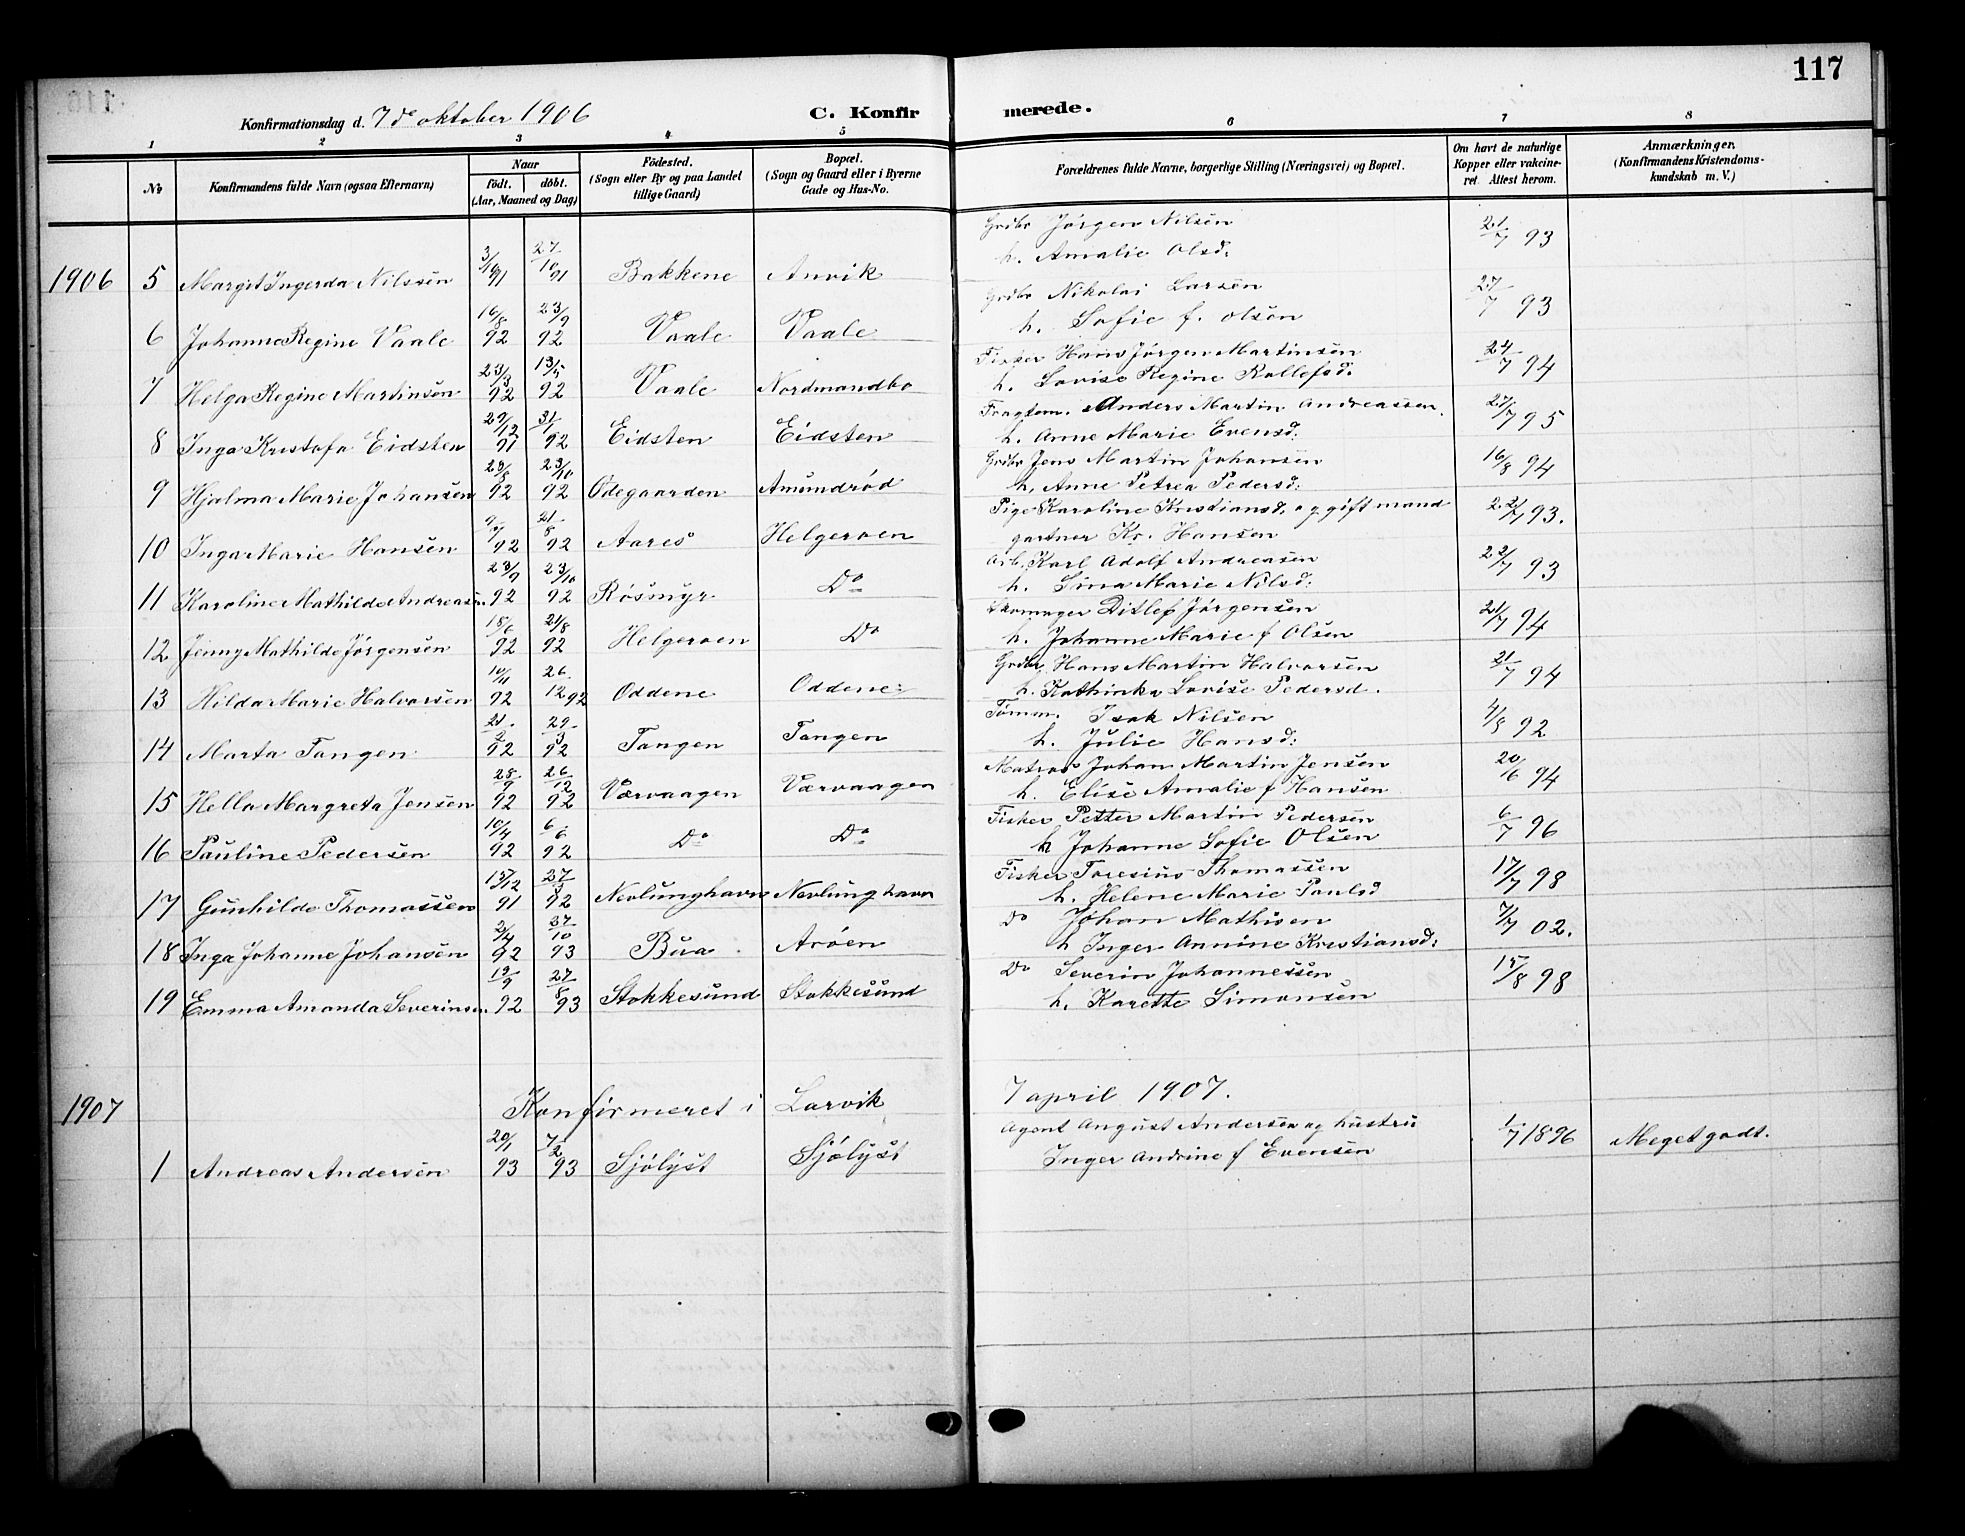 117
Konfirmationsdag d. 7de oktober 1906 C. Konfirmerede.
1 2 3 4 5 6 7 8
No Konfirmandens fulde Navn (ogsaa Efternavn) Naar født. døbt. (Aar, Maaned og Dag) Fødested. (Sogn eller By og paa Landet tillige Gaard) Bopæl. (Sogn og Gaard eller i Byerne Gade og Hus-No. Forældrenes fulde Navne, borgerlige Stilling (Næringsvei) og Bopæl. Om havt de naturlige Kopper eller vakcineret. Attest herom. Anmærkninger. (Konfirmandens Kristendomskundskab m. V.)
Grdbr Jørgen Nilsen 21/7 93
1906 5 Margit Ingerda Nilssen 3/10 91 27/10 91 Bakkene Anvik h. Amalie Olsd.
Grdbr Nikolai Larsen 27/7 93
6 Johanne Regine Vaale 16/8 92 23/9 92 Vaale Vaale h. Sofie f. Olsen
Fisker Hans Jørgen Martinsen 24/7 94
7 Helga Regine Martinsen 23/3 92 13/5 92 Vaale Nordmandbo h. Lovise Regine Rollefsd.
Fragtem. Anders Martin Andreassen. 27/7 95
8 Inga Kristofa Eidsten 29/12 91 31/1 92 Eidsten Eidsten h. Anne Marie Evensd:
Grdbr Jens Martin Johansen 16/8 94
9 Hjalma Marie Johansen 23/8 92 23/10 92 Ødegaarden Amundrød h. Anne Petrea Pedersd:
Pige Karoline Kristiansd. og gift mand 22/7 93.
10 Inga Marie Hansen 9/7 92 21/8 92 Aarøs Helgeroen gartner Kr. Hansen
Arb. Karl Adolf Andreasen 22/7 93
11 Karoline Mathilde Andreasen. 23/9 92 23/10 92 Røsmyr Do h. Sina Marie Nilsd:
Skomager Ditlef Jørgensen 21/7 94
12 Jenny Mathilde Jørgensen 18/6 92 21/8 92 Helgeroen Do h. Johanne Marie f Olsen
Grdbr. Hans Martin Halvorsen 21/7 94
13 Hilda Marie Halvorsen 10/11 92 26/12 92 Oddene Oddene: h. Kathinka Lovise Pedersd.
Tømm. Isak Nilsen 4/8 92
14 Marta Tangen 21/2 92 29/3 92 Tangen Tangen h. Julie Hansd:
Matros Johan Martin Jensen 20/6 94
15 Hella Margreta Jensen 28/9 92 26/12 92 Værvaagen Værvaagen h. Elise Amalie f Hansen
Fisker Petter Martin Pedersen 6/7 96
16 Pauline Pedersen 10/4 92 6/6 92 Do Do h Johanne Sofie Olsen
Fisker Toresius Thomassen 17/7 98
17 Gunhilde Thomassen 15/12 91 27/3 92 Nevlunghavn Nevlunghavn h. Helene Marie Paulsd
Do Johan Mathisen 7/7 02.
18 Inga Johanne Johansen 2/4 92 27/10 93 Bua Arøen h Inger Annine Kristiansd:
Do Severin Johannessen 15/8 98
19 Emma Amanda Severinsen. 19/9 92 27/8 93 Stokkesund Stokkesund h. Karette Simonsen
1907 Konfirmeret i Larvik 7 april 1907.
Agent August Andersen og hustru 1/7 1896 Meget godt.
1 Andreas Andersen 20/1 93 7/2 93 Sjølyst Sjølyst Inger Andrine f Evensen